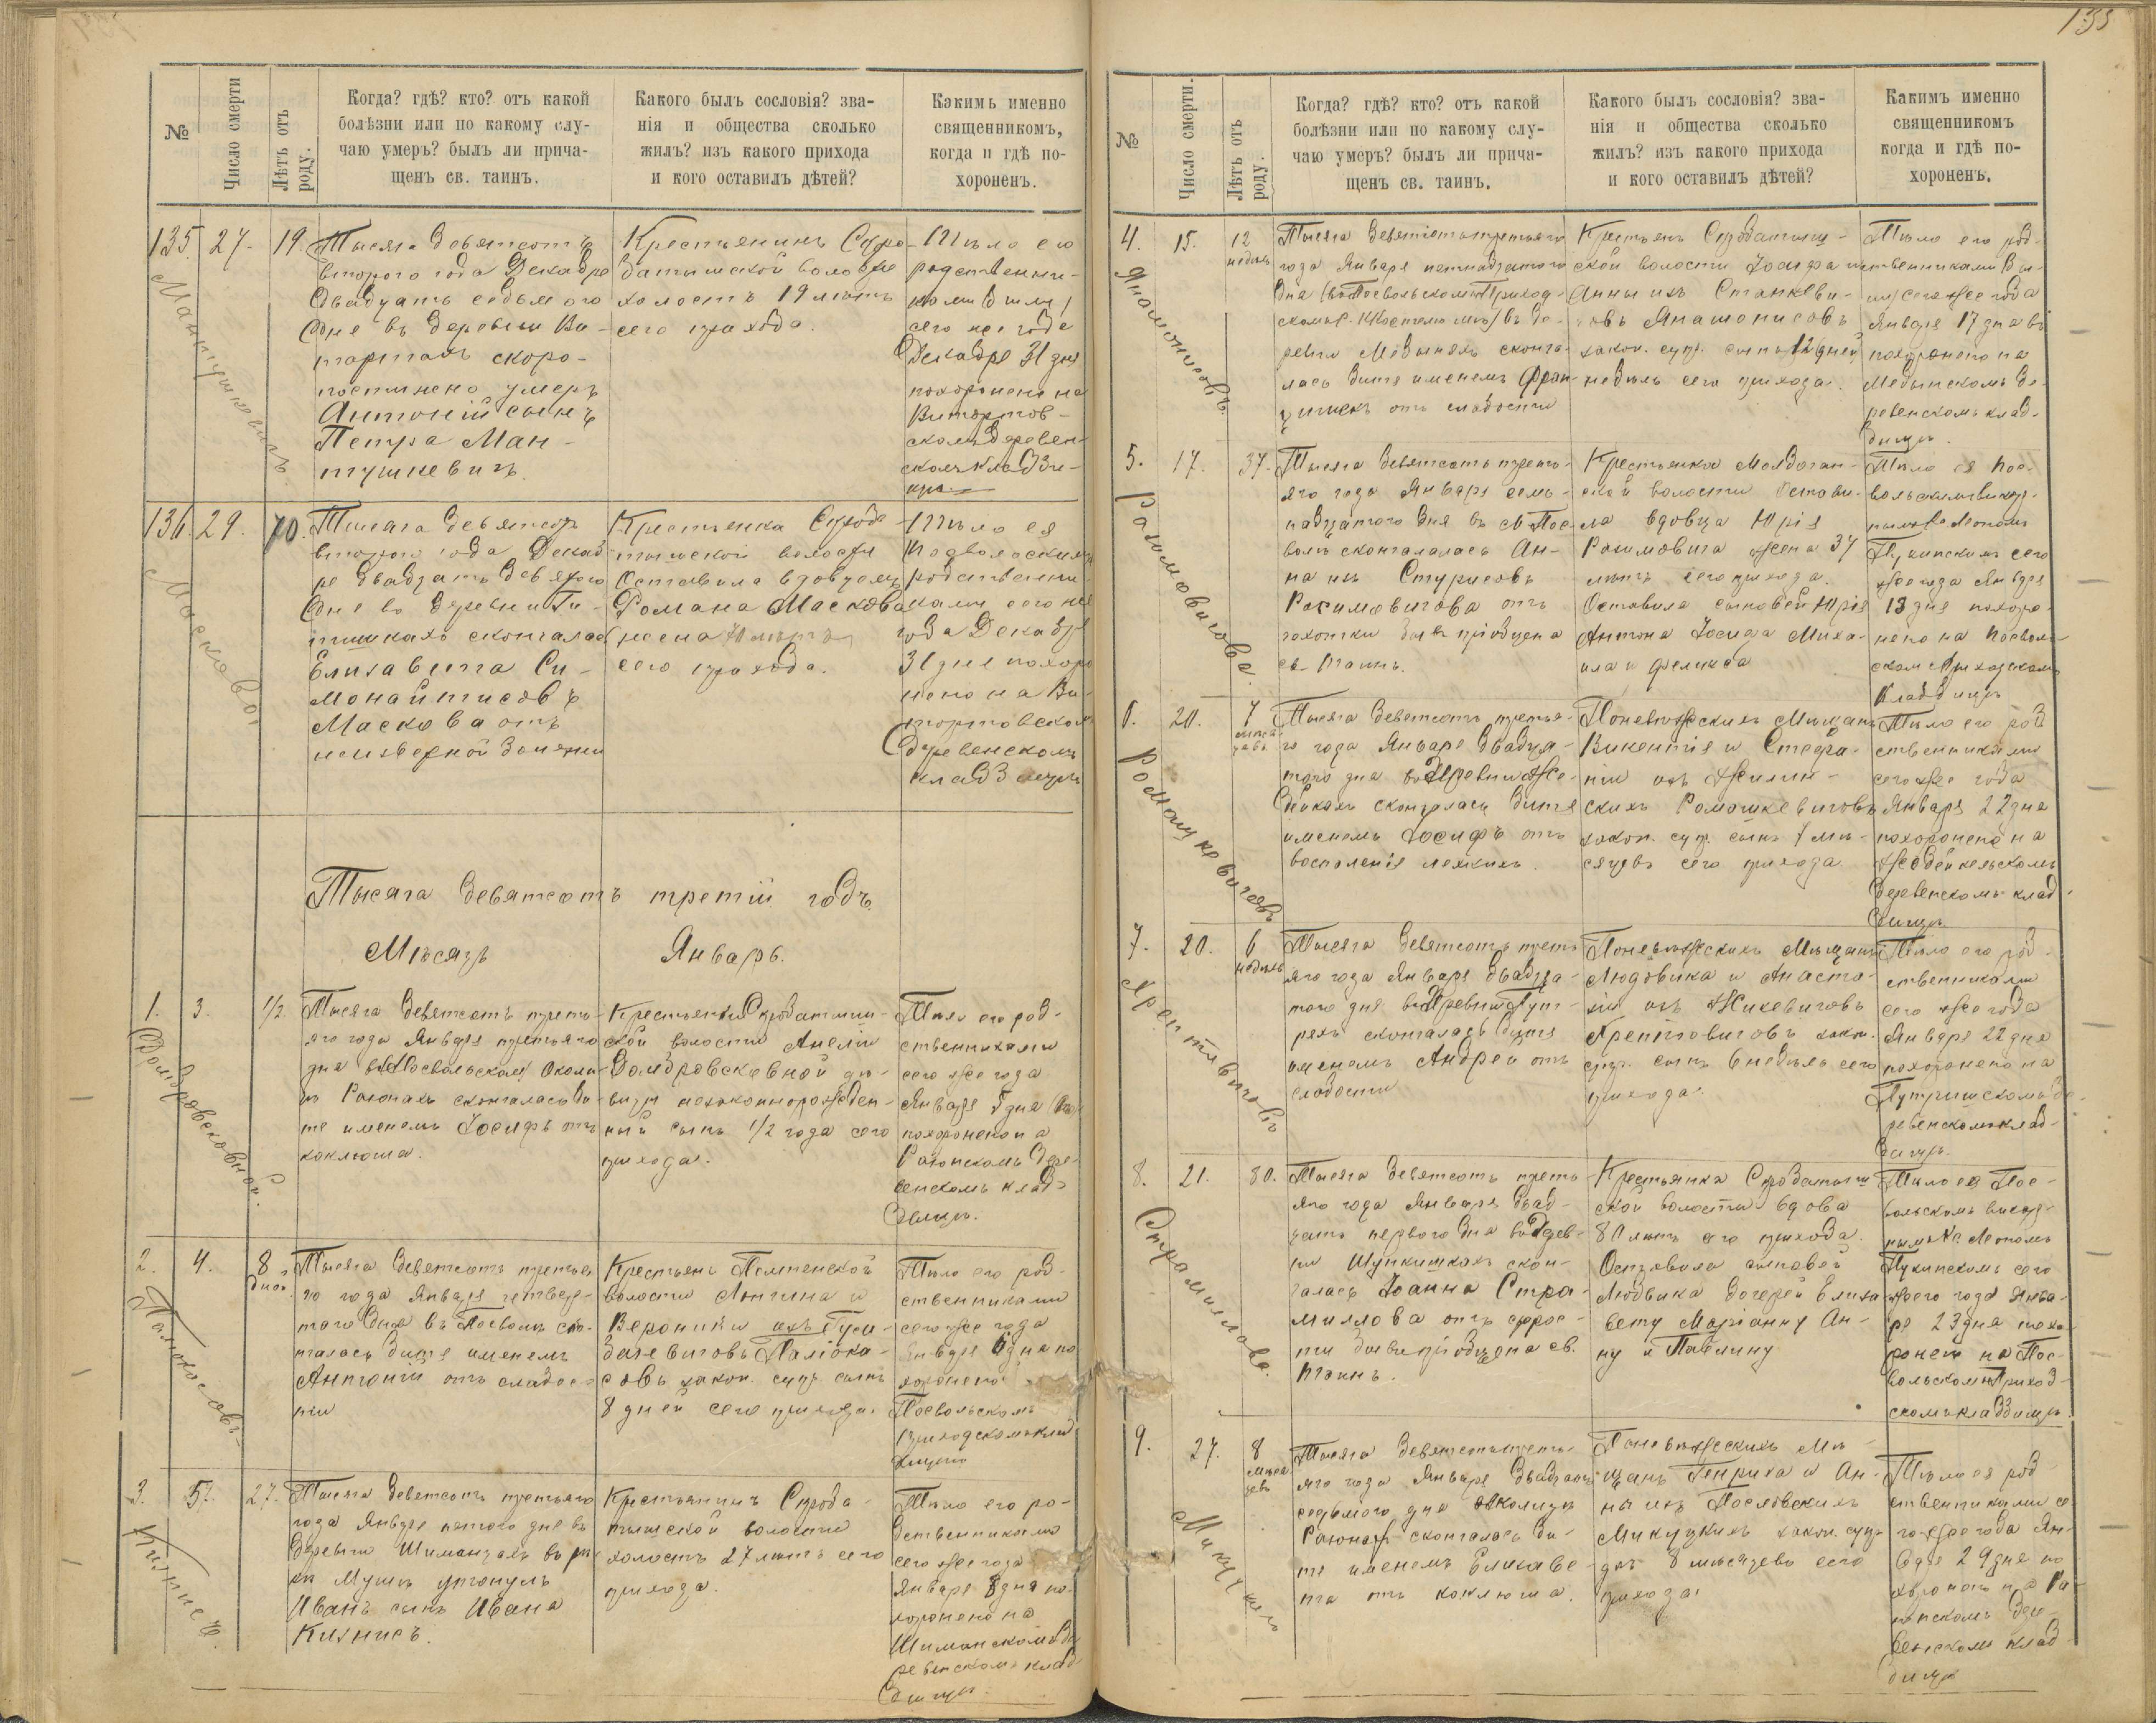 135
№
Число смерти
Лѣтъ отъ роду.
Когда? гдѣ? кто? отъ какой
болѣзни или по какому слу-
чаю умеръ? былъ ли прича-
щенъ св. таинъ.
Какого былъ сословія? зва-
нія и общества сколько
жилъ? изъ какого прихода
и кого оставилъ дѣтей?
Какимъ именно
священникомъ,
когда и гдѣ по-
хороненъ.
135. 27. 19.
Мантушкевичъ
Тысяча девятьсотъ
второго года Декабря
двадцать седьмого
дня въ деревни Ви-
тортахъ скоро-
постижно умеръ
Антоній сынъ
Петра Ман-
тушкевичъ.
Крестьянинъ Скро-
батишской волости
холостъ 19 лѣтъ
сего прихода.
Тѣло его
родственни-
ками
сего же года
Декабря 31 дня
похоронено на
Витортов-
скомъ деревен-
скомъ кладби-
щѣ
136. 29. 70.
Маскова
Тысяча девятсотъ
второго года Декаб-
ря двадцать девятого
дня въ деревни Ги-
скончалась
Елизавета Си-
монайтисовъ
Маскова отъ
неизвестной болезни
Крестьянка Скроба-
тишской волости
Оставила вдовцомъ
Романа Маскова
жена 70 лѣтъ
сего прихода.
Тѣло ея
родственни-
ками сего же
года Декабря
31 дня похоро-
нено на Ви-
тортовскомъ
деревенскомъ
кладбищѣ
Тысяча девятсотъ третій годъ.
Мѣсяцъ Январь.
1. 3. 1/2
Домбровскевной.
Тысяча девятсотъ треть-
яго года Января третьяго
дня въ Посвольскомъ околи-
цѣ Раюнахъ скончалась ди-
тя именемъ Іосифъ отъ
коклюша.
Крестьянки Скробатиш-
ской волости Анеліи
Домбровскевной дѣ-
вицы незаконнорожден-
ный сынъ 1/2 года сего
прихода.
Тѣло его род-
ственниками
сего же года
Января 5 дня
похоронено на
Раюнскомъ дере-
венскомъ клад-
бищѣ.
2. 4. 8 дней
Паліокасовъ
Тысяча девятсотъ третья-
го года Января четвер-
того дня въ Посволѣ ско-
нчалась дитя именемъ
Антоній отъ слабос-
ти
Крестьянъ Помпенской
волости Лонгина и
Вероники изъ Гуи-
дзевичовъ Паліока-
совъ закон. супр. сынъ
8 дней сего прихода.
Тѣло его род-
ственниками
сего же года
Января 6 дня по-
хоронено
Посвольскомъ
приходскомъ клад-
бищѣ
3. 5. 27.
Кизнисъ.
Тысяча девятсотъ третьяго
года Января пятого дня въ
деревни Шиманцахъ въ рѣ-
кѣ Мушѣ утонулъ
Иванъ сынъ Ивана
Кизнисъ.
Крестьянинъ Скроба-
тишской волости
холостъ 27 лѣтъ сего
прихода.
Тѣло его ро-
дственниками
сего же года
Января 8 дня по-
хоронено на
Шиманскомъ де-
ревенскомъ клад-
бищѣ.
№
Число смерти.
Лѣтъ отъ роду.
Когда? гдѣ? кто? отъ какой
болѣзни или по какому слу-
чаю умеръ? былъ ли прича-
щенъ св. таинъ.
Какого былъ сословія? зва-
нія и общества сколько
жилъ? изъ какого прихода
и кого оставилъ дѣтей?
Какимъ именно
священникомъ
когда и гдѣ по-
хороненъ.
4. 15. 12 недѣль
Янамонисовъ.
Тысяча девятсотъ третьяго
года Января пятнадцатого
дня въ де-
ревни сконча-
лась дитя именемъ Фран-
цишекъ отъ слабости
Крестьянъ Скробатиш-
ской волости Іосифа и
Анны изъ Станкеви-
човъ Янамонисовъ
закон. супр. сынъ 12
недѣль сего прихода.
Тѣло его род-
ственниками
сего же года
Января 17 дня
похоронено на
де-
ревенскомъ клад-
бищѣ.
5. 17. 37.
Рахимовичова.
Тысяча девятсотъ треть-
яго года Января сем-
надцатого дня въ м. Пос-
волѣ скончалась Ан-
на изъ Стурисовъ
Рахимовичова отъ
чахотки бывъ пріобщена
св. Таинъ.
Крестьянка
волости остави-
ла вдовца Юрія
Рахимовича жена 37
лѣтъ сего прихода.
Оставила сыновей Юрія
Антона Іосифа Миха-
ила и Феликса
Тѣло ея Пос-
вольскимъ викар-
нымъ Кс. Леономъ
Пукинскимъ сего
же года Января
дня похоро-
нено на Посволь-
скомъ приходскомъ
кладбищѣ
6. 20. 7 мѣся-
цевъ
Ромашкевичовъ
Тысяча девятсотъ третья-
го года Января двадца-
того дня въ деревни Же-
дейкахъ скончалась дитя
именемъ Іосифъ отъ
воспаленія легкихъ.
Поневѣжскихъ Мѣщанъ
Викентія и Стефа-
ніи изъ Жилин-
скихъ Ромашкевичовъ
закон. супр. сынъ 7 мѣ-
сяцевъ сего прихода
Тѣло его род-
ственниками
сего же года
Января 22 дня
похоронено на
деревенскомъ клад-
бищѣ.
7. 20. 6 недѣль
Арентовичовъ
Тысяча девятсотъ треть-
яго года Января двадца-
того дня въ деревни Пут-
рехъ скончалась дитя
именемъ Андрей отъ
слабости
Поневѣжскихъ Мѣщанъ
Людовика и Анаста-
зіи изъ Жикевичовъ
Арентовичовъ закон.
супр. сынъ 6 недѣль сего
прихода.
Тѣло его род-
ственниками
сего же года
Января 22 дня
похоронено на
Путришскомъ де-
ревенскомъ клад-
бищѣ.
8. 21. 80.
Страмилова.
Тысяча девятсотъ треть-
яго года Января двад-
цать первого дня въ дерев-
ни Шункишкахъ скон-
чалась Іоанна Стра-
милова отъ старос-
ти бывъ пріобщена св.
Таинъ.
Крестьянка Скробатиш-
ской волости вдова
80 лѣтъ сего прихода.
Оставила сыновей
Людвика дочерей Елиза-
вету Маріанну Ан-
ну и Павлину
Тѣло ея Пос-
вольскимъ викар-
нымъ Кс. Леономъ
Пукинскимъ сего
же года Янва-
ря 23 дня похо-
ронен на Пос-
вольскомъ приход-
скомъ кладбищѣ.
9. 27. 8 мѣся
цевъ
Тысяча девятсотъ треть-
яго года Января двадцать
седьмого дня въ околицѣ
Раюнахъ скончалась ди-
тя именемъ Елизаве-
та отъ коклюша.
Поневѣжскихъ Мѣ-
щанъ Генриха и Ан-
ны изъ Пословскихъ
Микуцкихъ закон. супр.
дочь 8 мѣсяцевъ сего
прихода.
Тѣло ея род-
ственниками се-
го же года Ян-
варя 29 дня по-
хоронен на Ра-
юнскомъ дере-
венскомъ клад-
бищѣ